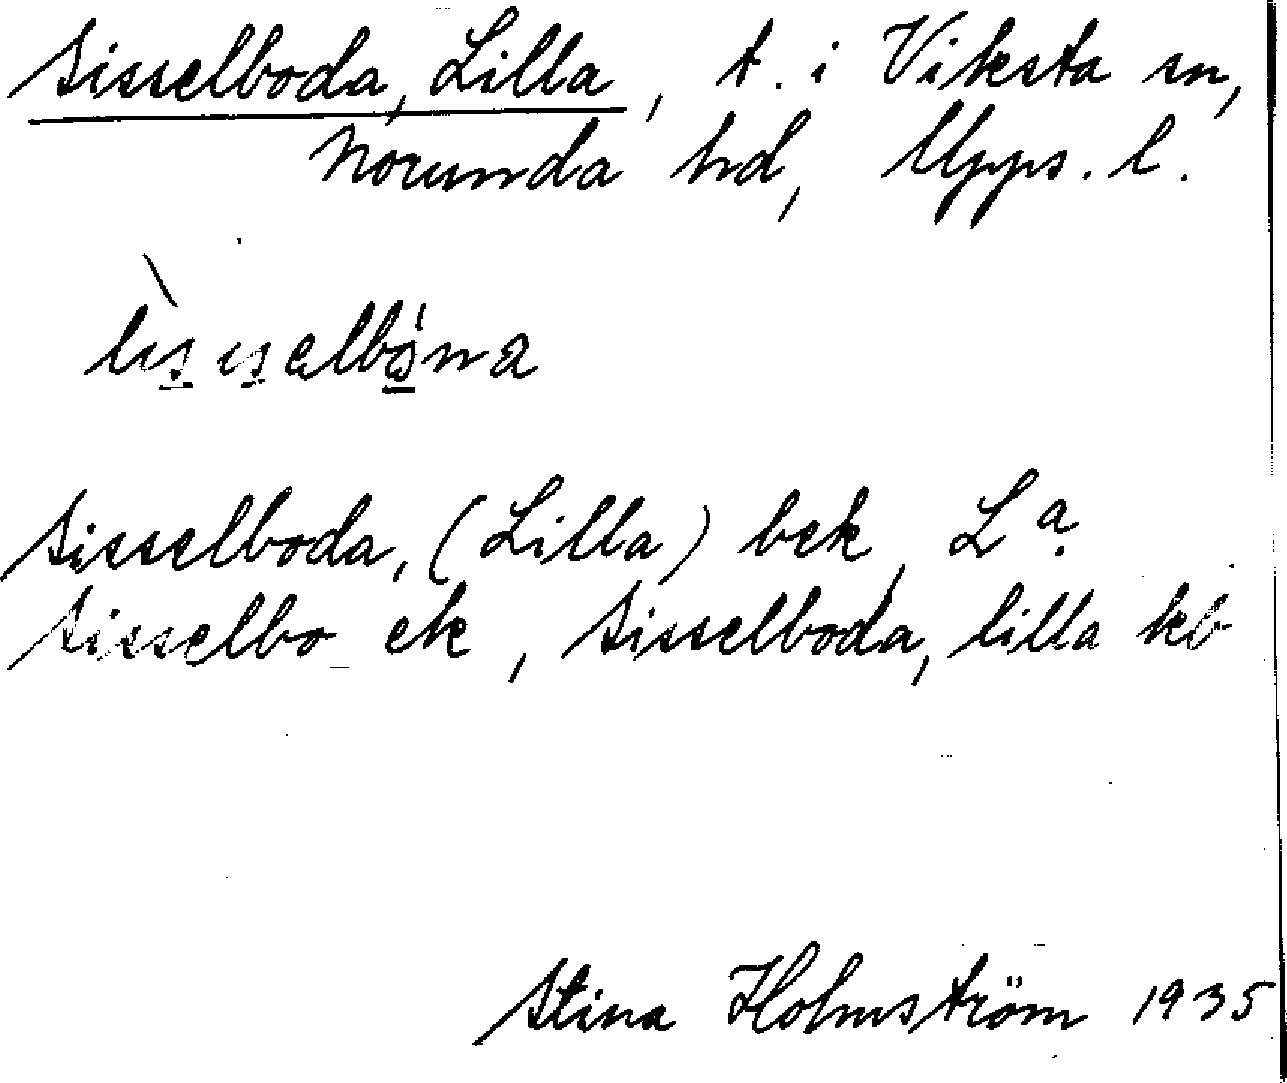 Sisselboda, Lilla, t. i Viksta sn,
Norunda hd, Upps. l.
Sisselboda, (Lilla) bek, Lª
Sisselbo ek, Sisselboda, lilla kb
Stina Holmström 1935